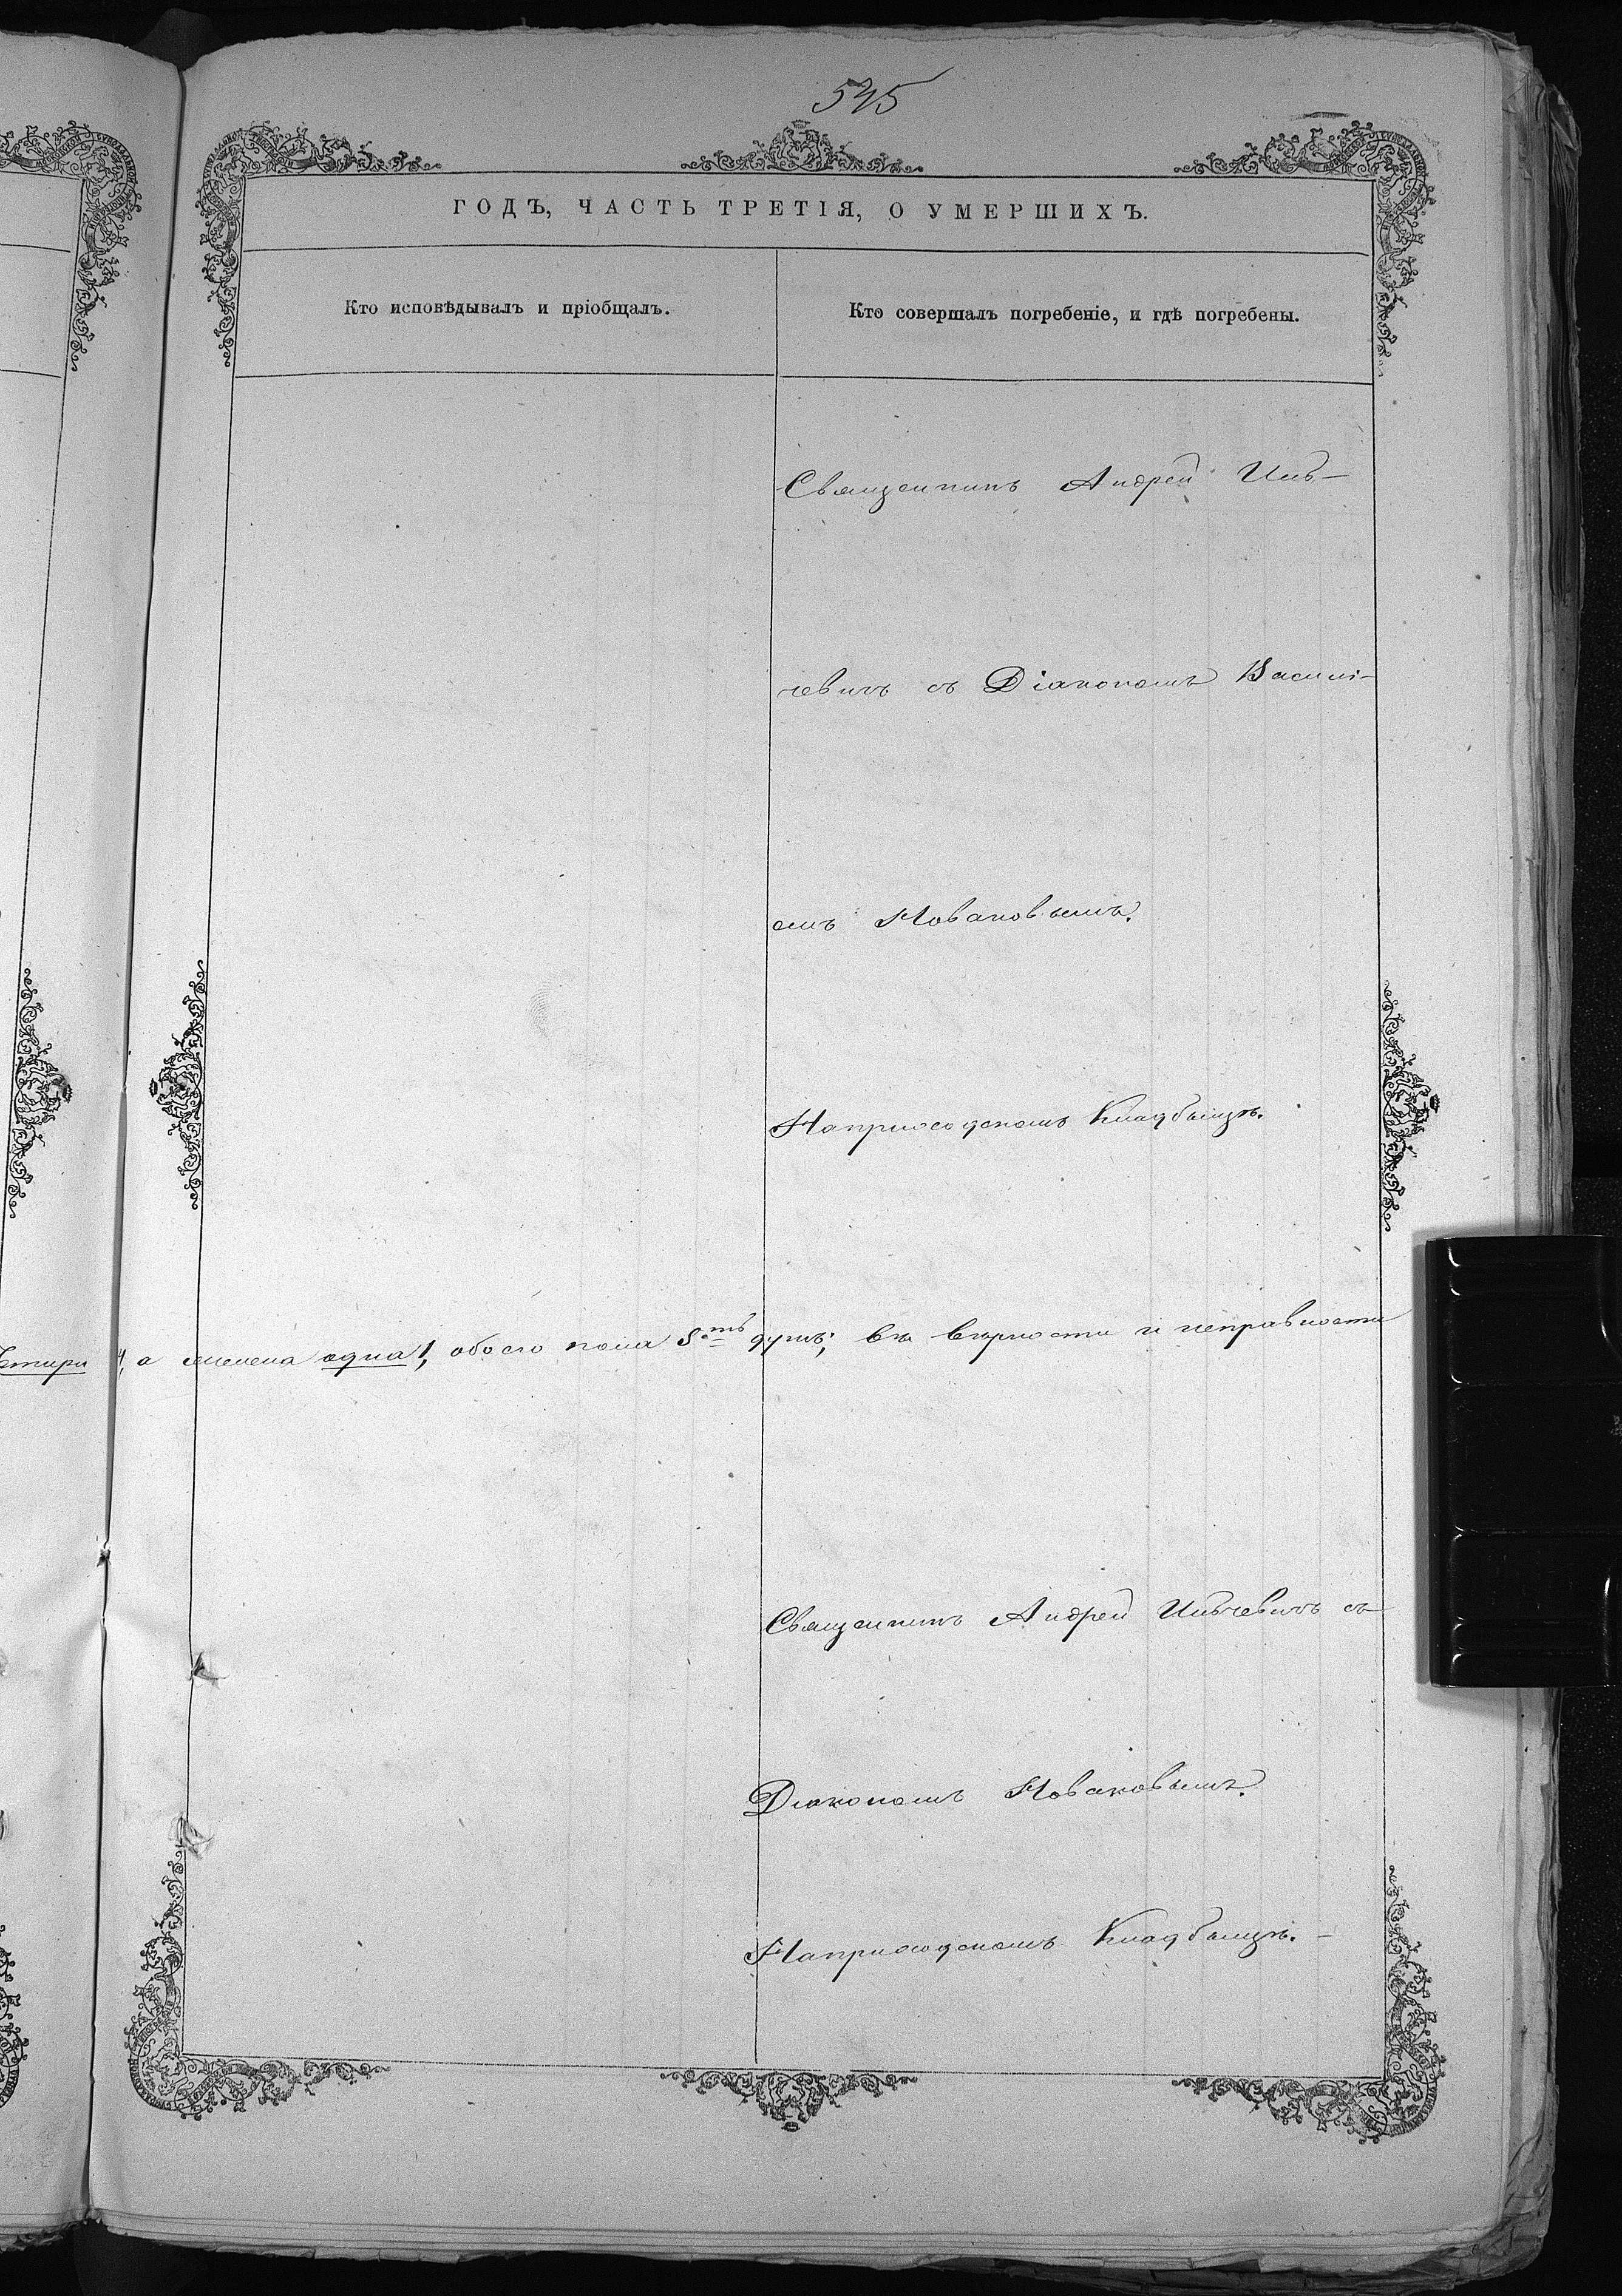 545
ГОДЪ, ЧАСТЬ ТРЕТІЯ, О УМЕРШИХЪ.
Кто исповѣдывалъ и пріобщалъ.
Кто совершалъ погребеніе, и гдѣ погребены.
Священникъ Андрей Ильи-
чевичъ съ Діакономъ Василі-
емъ Новаковымъ.
На приходскомъ Кладбищѣ.
4, а женска одна 1, обоего пола 5.ть душъ; въ вѣрности и исправности
Священникъ Андрей съ
Діакономъ Новаковымъ.
На приходскомъ Кладбищѣ. —